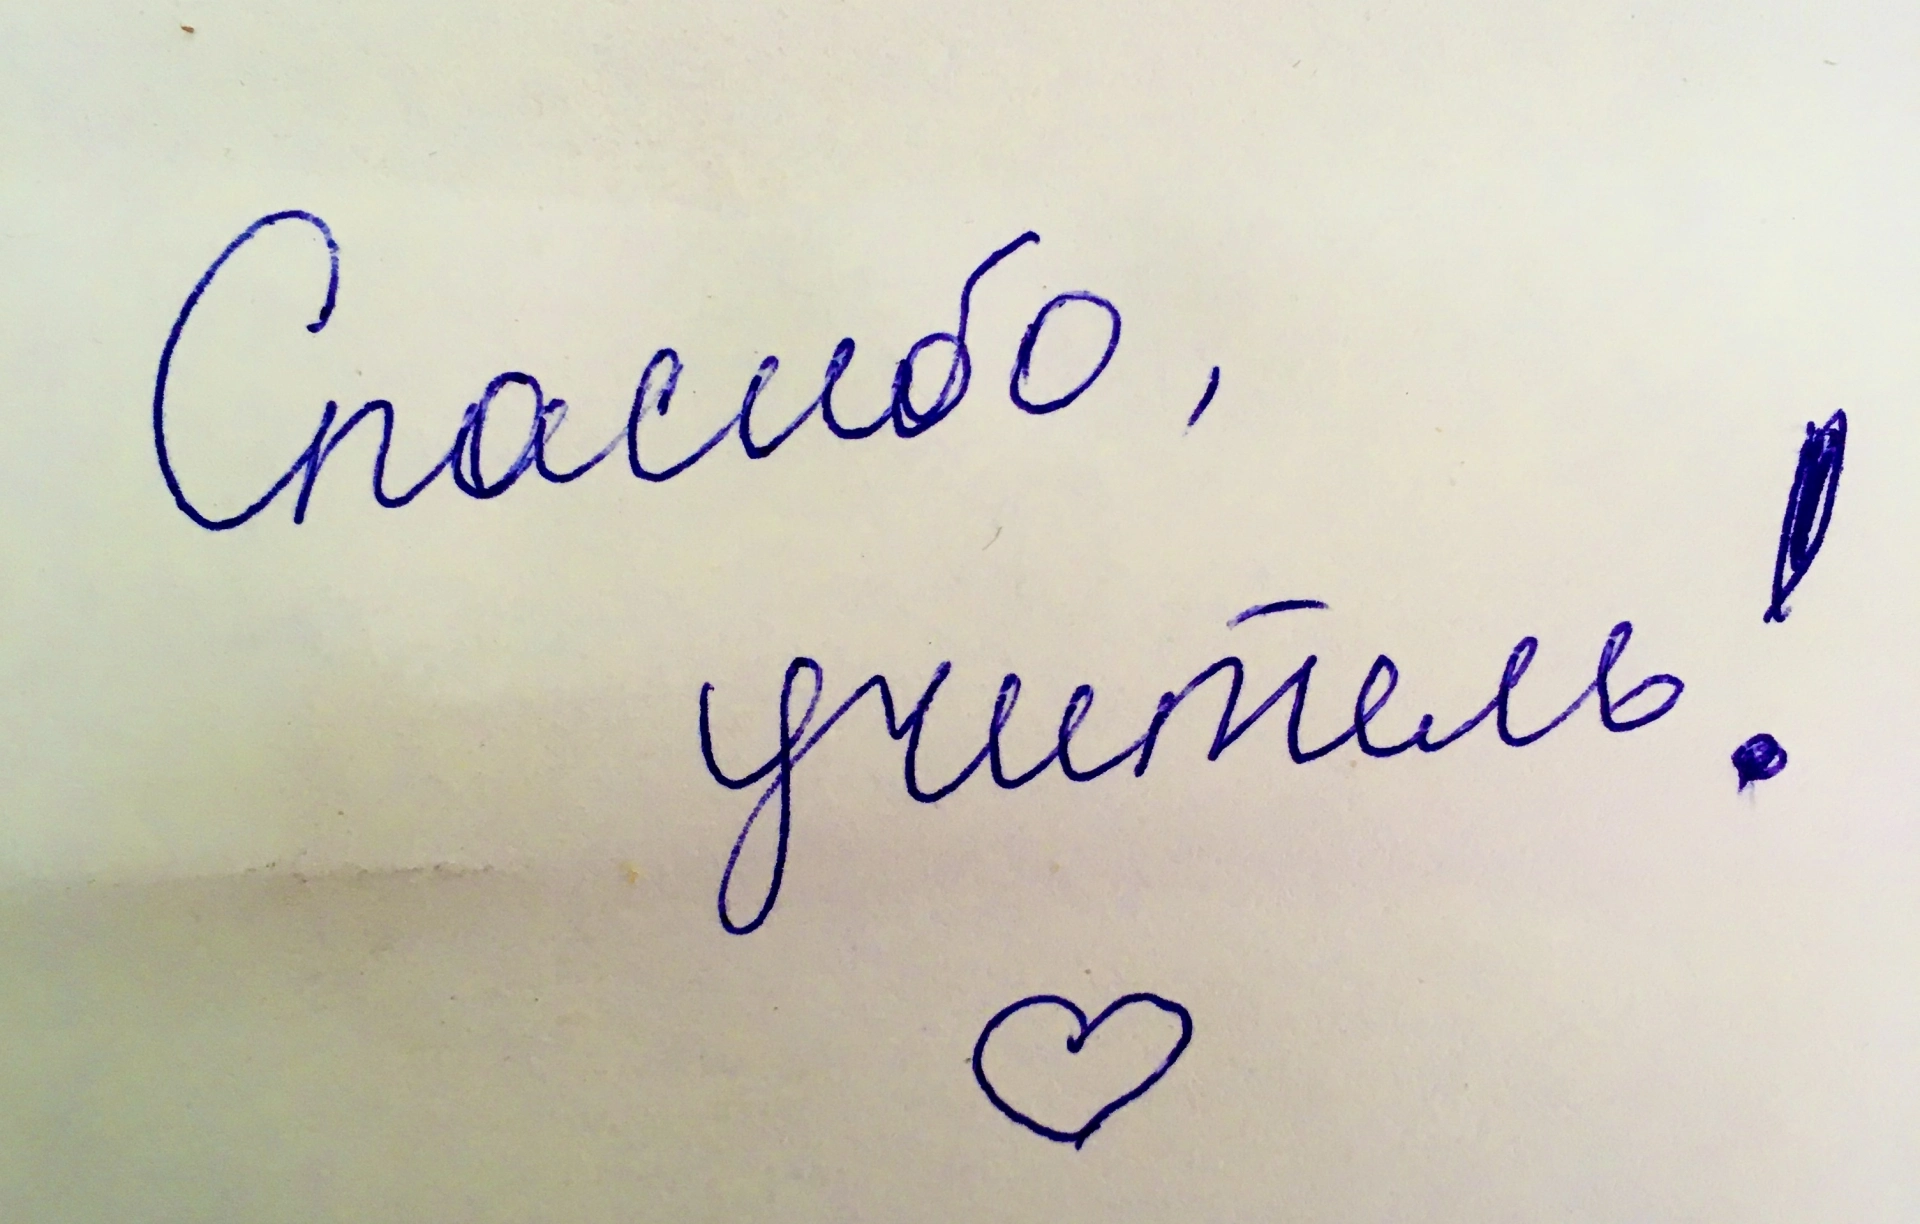 Спасибо,
учитель!